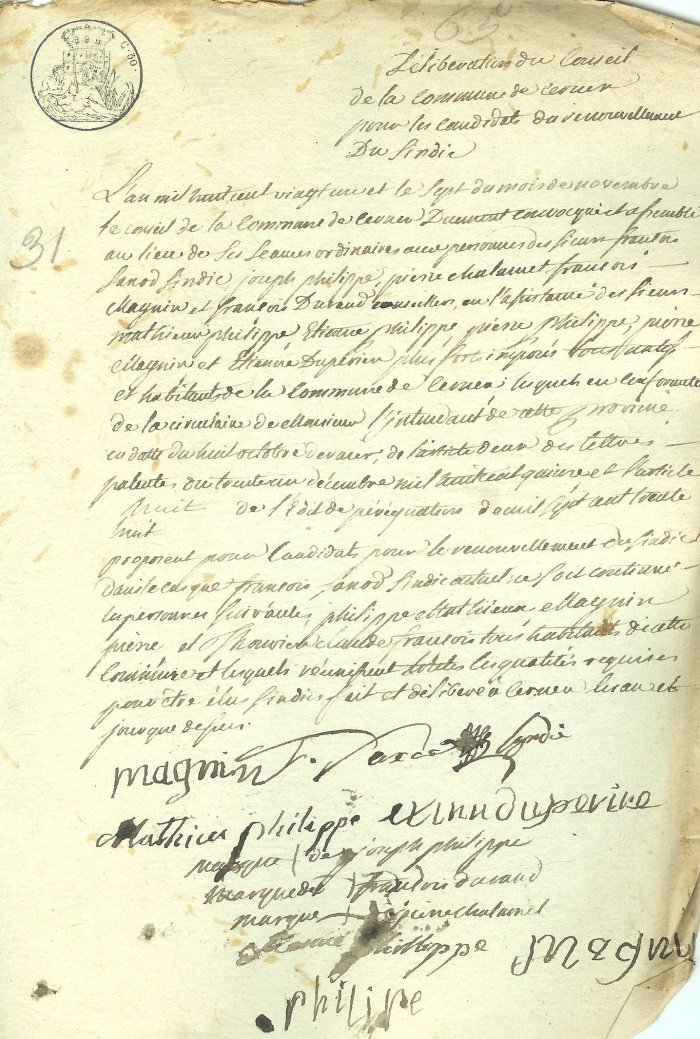 65
C. 50.
Délibération du Conseil
de la Commune de Cernex
pour les Candidats du renouvellement
Du Sindic
31
L'an mil huit cent vingt un et le sept du mois de novembre
le Conseil de la Commune de Cernex Duement convocqué et assemblé
au lieu de ses séances ordinaires aux personnes des sieurs françois
Janod Sindic, joseph philippe, pierre Chalamet françois
Magnin et françois Durand Conseiller, en l'assistance des sieurs
mathieu philippe Etienne philippe pierre philippe, pierre
Magnin et Etienne Duperier plus forts imposés tous natifs
et habitants de la Commune de Cernex lesquels en Conformité
de la circulaire de Monsieur l'intendant de cette Province
en datte du huit octobre dernier, de l'article deux des lettres
patentes du trente un décembre mil huit cent quinze et l'article
huit de l'Edit de péréquation de mil sept cent trente
huit
proposent pour Candidats pour le renouvellement du sindic
dans le cas que françois Janod sindic actuel ne soit continué
les personnes suivantes, philippe Mathieu Magnin
pierre et claude françois tous habitants de cette
Commune et lesquels réunissent toutes les qualités requises
pour être élus sindics fait et délibéré à Cernex les an et
jour que dessus.
magnin f. Sindic
Mathieu philippe
marque de joseph philippe
marque de françois durand
marque de pierre chalamet
philippe Magnin
philipe